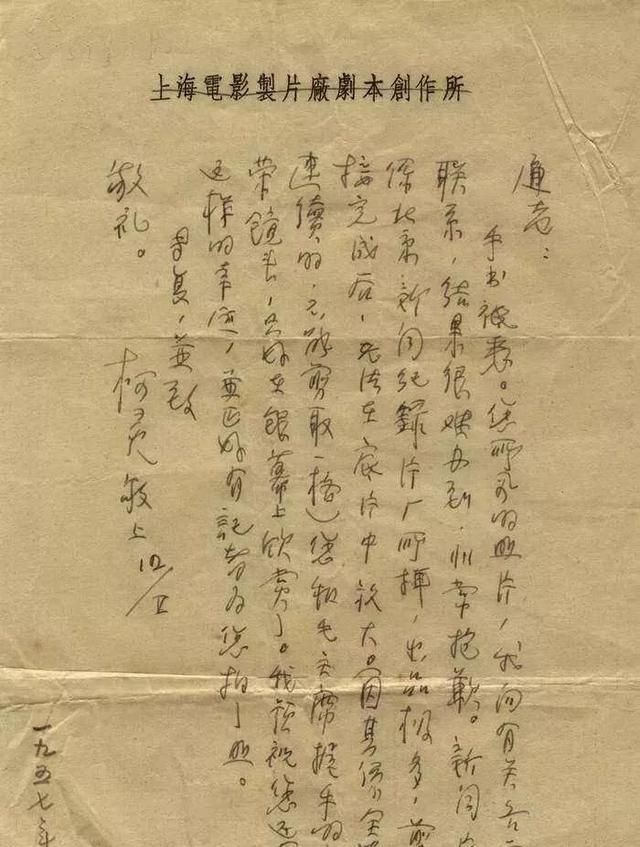 上海電影製片廠劇本創作所
老：
手书祗悉。您所需的照片，我向有关各
联系，结果很难办到，非常抱歉。新闻片
系北京新闻纪录片厂所摄，出品极多，剪
接完成后，无法在底片中放大。因其系
连续的，不能剪取一格）您和毛主席握手的
荣镜头，只好在银幕上欣赏了。我预祝您还
这样的幸运，并正好有記者为您拍了照。
复，并致
敬礼。
柯灵敬上 12/II
一九五七年